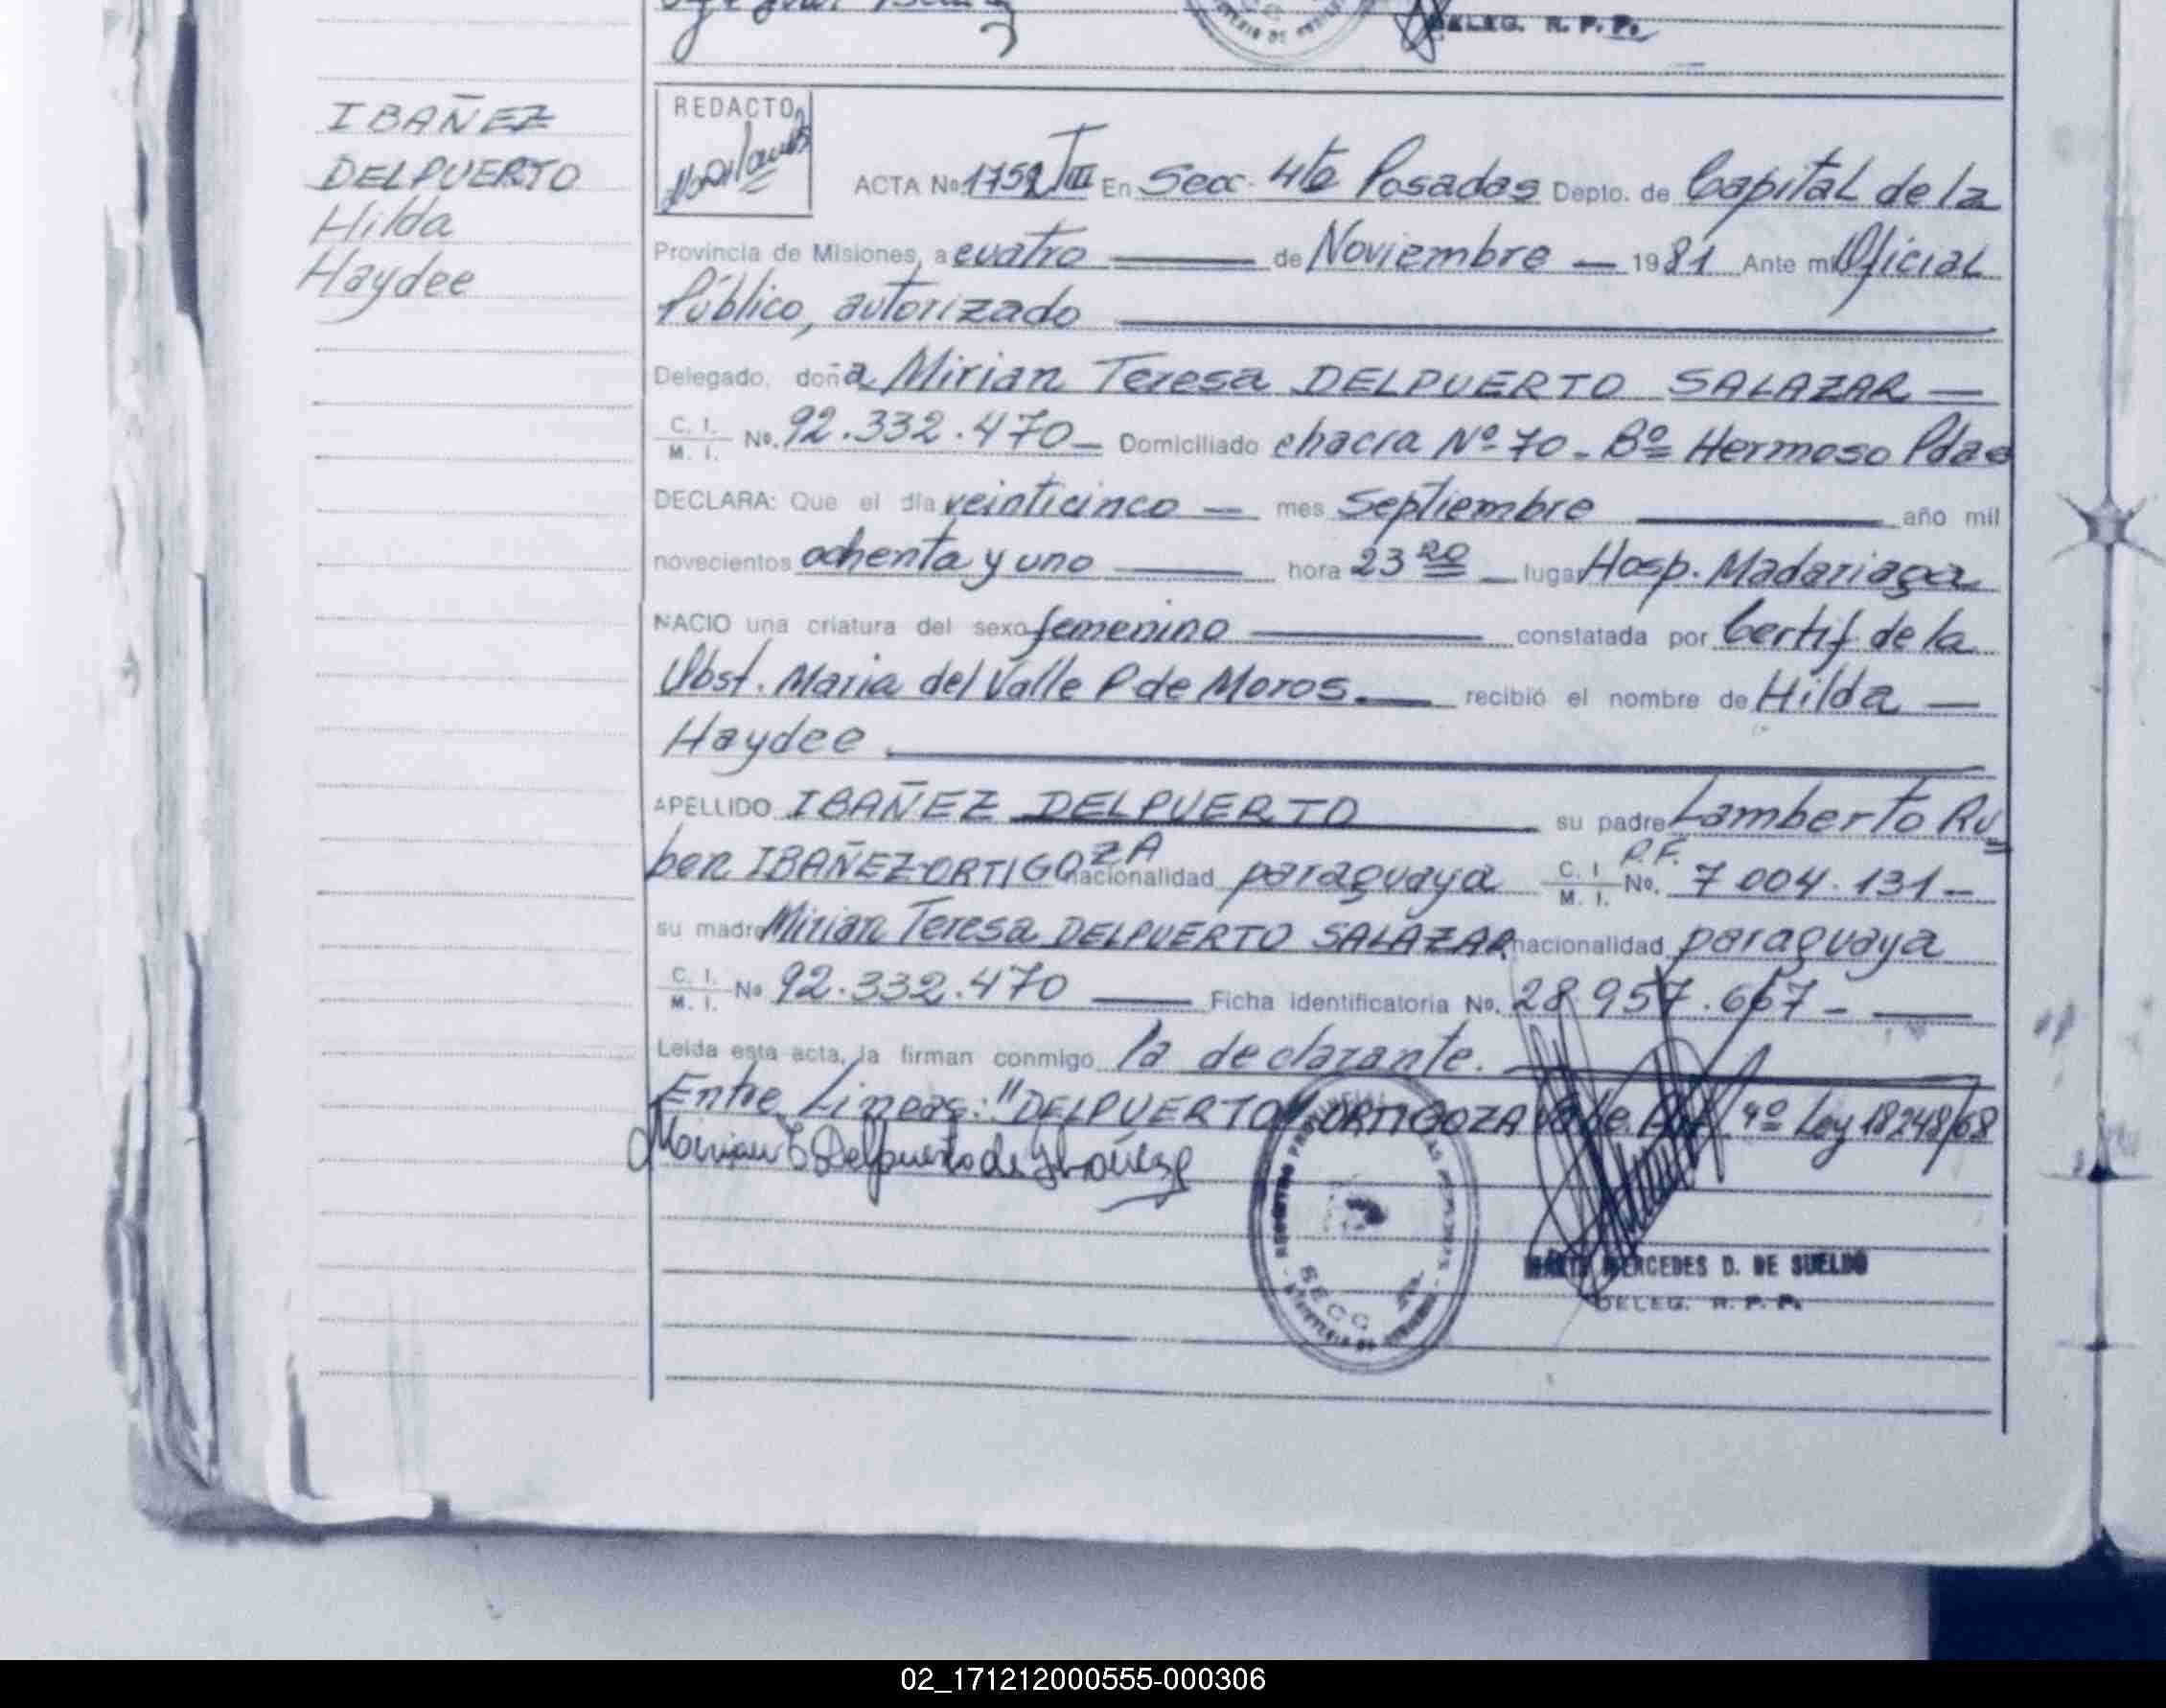 DELEG. R. P. P.
IBAÑEZ
DELPUERTO
Hilda
Haydee
REDACTO
ACTA No. 1752 T III En Secc. 4ta Posadas Depto. de Capital de la
Provincia de Misiones, a cuatro — de Noviembre — 1981 Ante mi Oficial
Público, autorizado
Delegado, doña Mirian Teresa DELPUERTO SALAZAR —
C. I. M. I. No. 92.332.470 — Domiciliado chacra Nº 70 - Bº Hermoso Pdas
DECLARA: Que el día veinticinco — mes Septiembre — año mil
novecientos ochenta y uno — hora 23 20 — lugar Hosp. Madariaga
NACIO una criatura del sexo femenino — constatada por Certif. de la
Obst. Maria del Valle P de Moros. — recibió el nombre de Hilda —
Haydee
APELLIDO IBAÑEZ DELPUERTO — su padre Lamberto Ru=
ben IBAÑEZ-ORTIGOZA nacionalidad paraguaya C. I. M. I. No. P.F. 7 004.131 —
su madre Mirian Teresa DELPUERTO SALAZAR nacionalidad paraguaya
C. I. M. I. No 92.332.470 — Ficha identificatoria No. 28.957.667 —
Leída esta acta, la firman conmigo la declarante.
Entre Lineas: "DELPUERTO" ORTIGOZA Vale. Art. 4º Ley 18248/68
Mirian T Delpuerto de Ibañez
SECC.
MERCEDES D. DE SUELDO
DELEG. R. P. P.
02_171212000555-000306